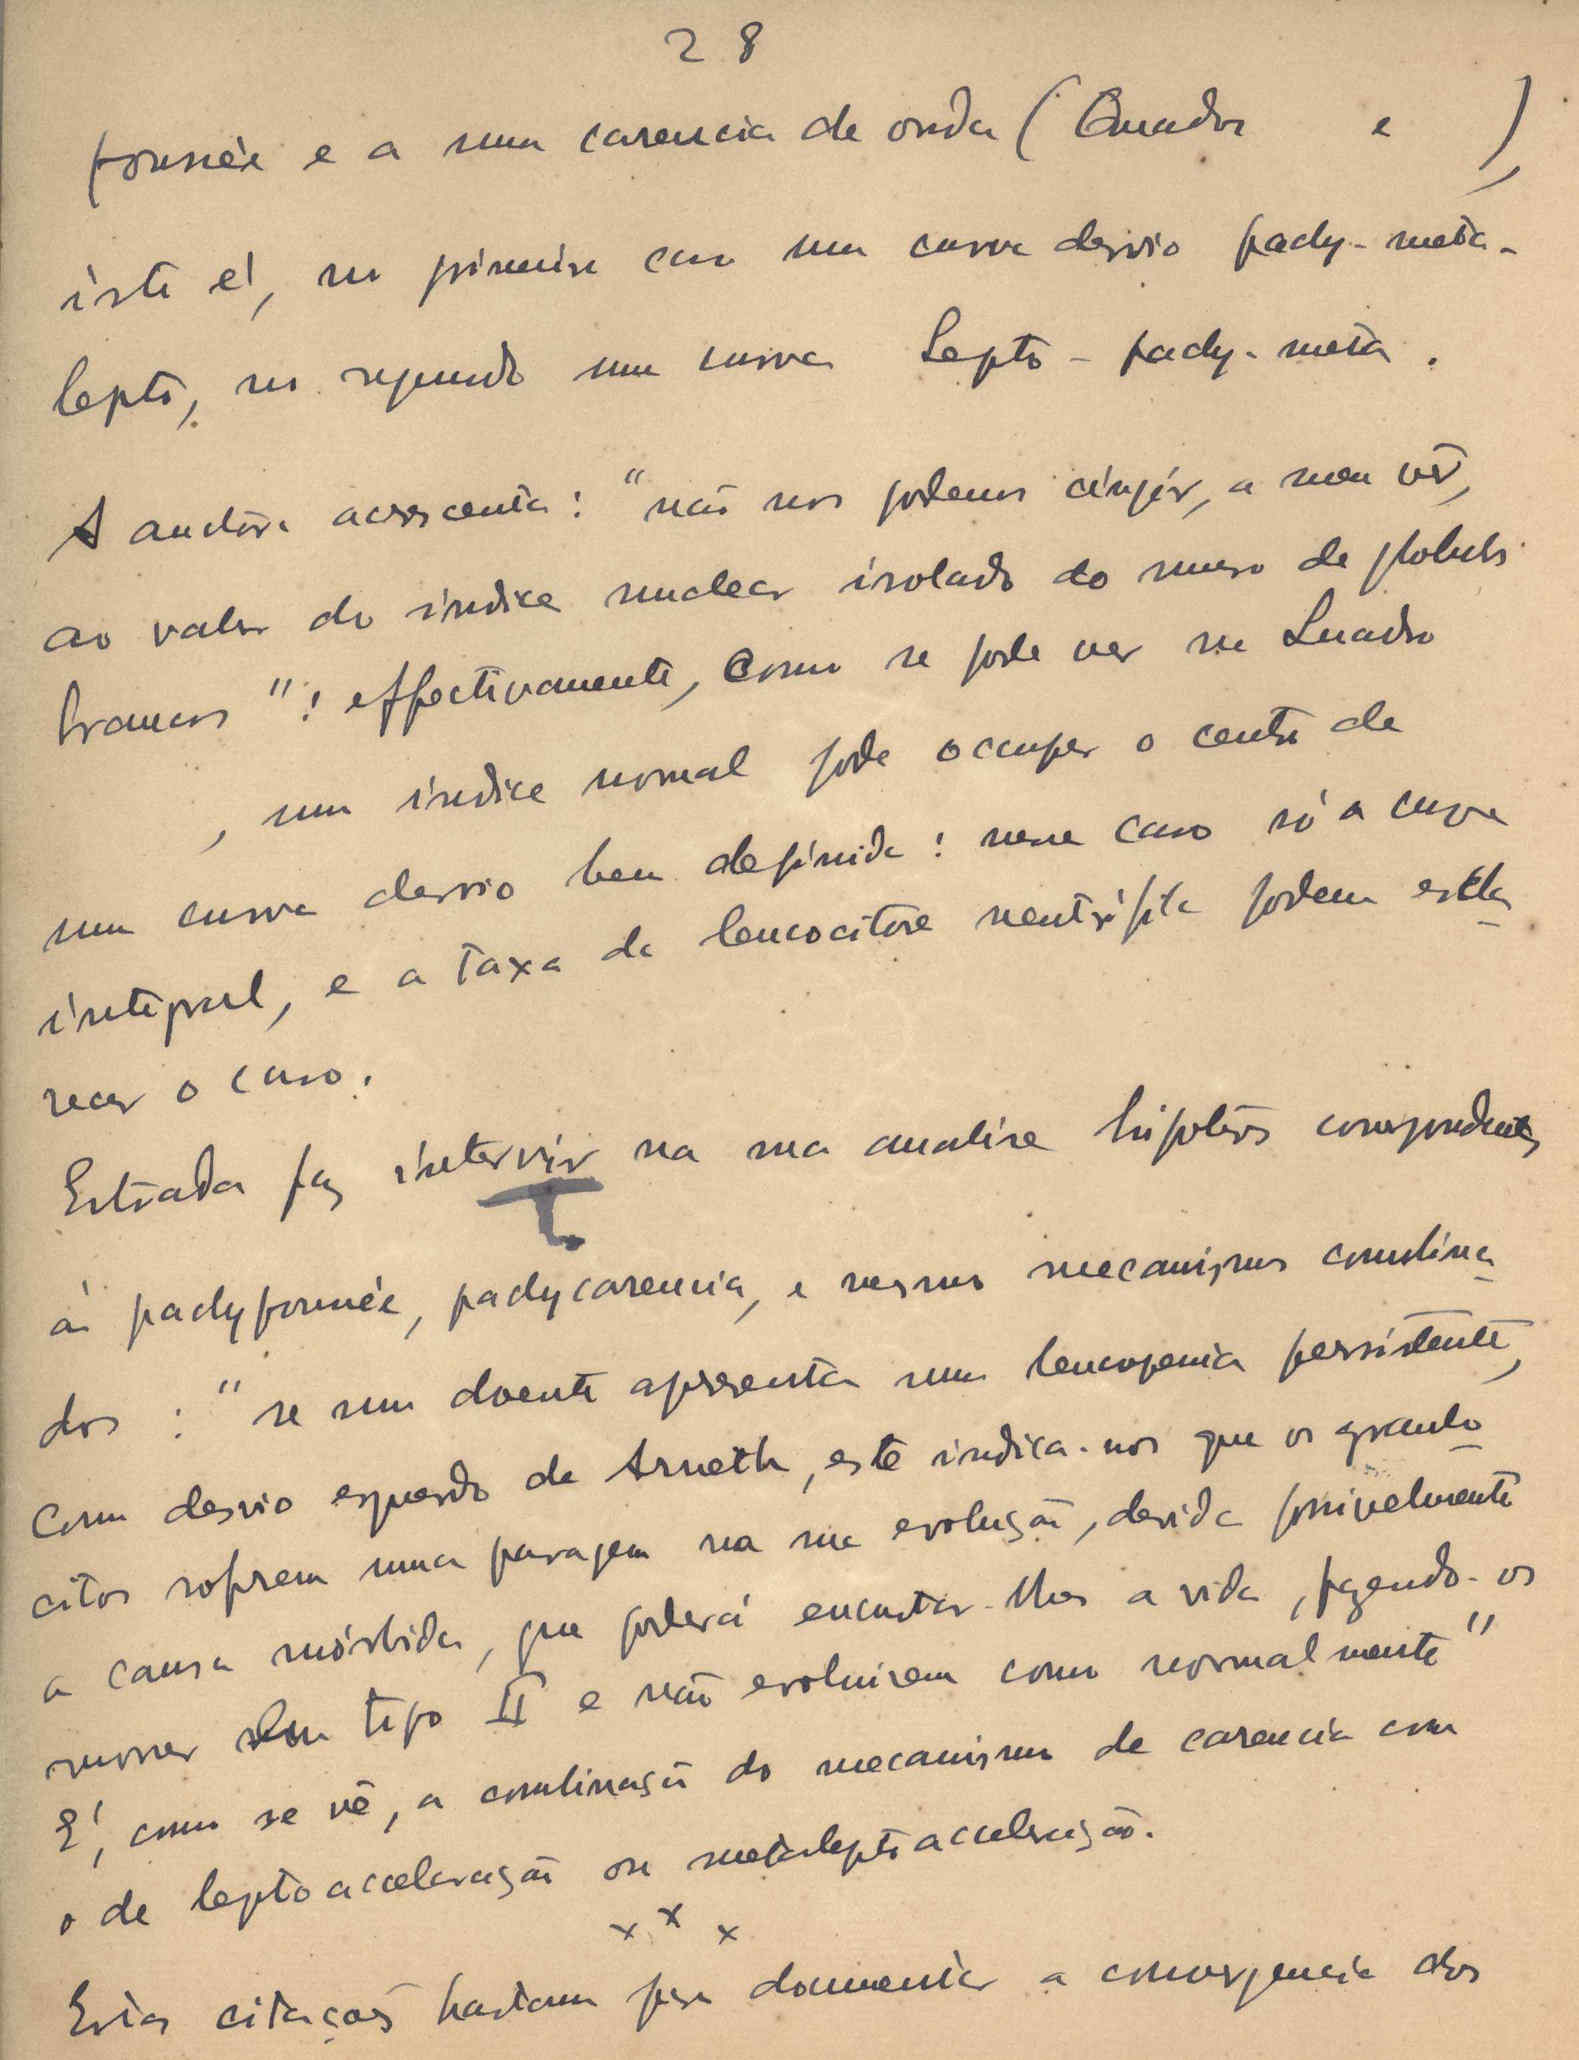 28
formóe e a uma carencia de onda (Quadro e ),
isto é, no primeiro caso uma curva desvio pachy-meta-
lepto, no segundo uma curva Lepto-pachy-meta.
A auctora acrescenta: "não nos podemos cingir, a meu vêr,
ao valor do indice nuclear isolado do numero de globulos
brancos"! effectivamente, como se pode ver no Quadro
, um indice normal pode occupar o centro de
uma curva desvio bem definida: nesse caso só a curva
integral, e a taxa da leucocitose neutrófila podem escla-
recer o caso.
Estrada faz intervir na sua analise hipoteses correspondentes
á pachyformóe, pachycarencia, e mesmo mecanismos combina-
dos: "se um doente apresenta uma leucopenia persistente,
com desvio esquerdo de Arneth, este indica-nos que os granulo-
citos sofrem uma paragem na sua evolução, devida possivelmente
a causa mórbida, que poderá encurtar-lhes a vida, fazendo-os
morrer em tipo II e não evoluirem como normalmente"
É, como se vê, a combinação do mecanismo de carencia com
o de leptoacceleração ou metaleptoacceleração.
x x x
Estas citações bastam para documentar a convergencia dos